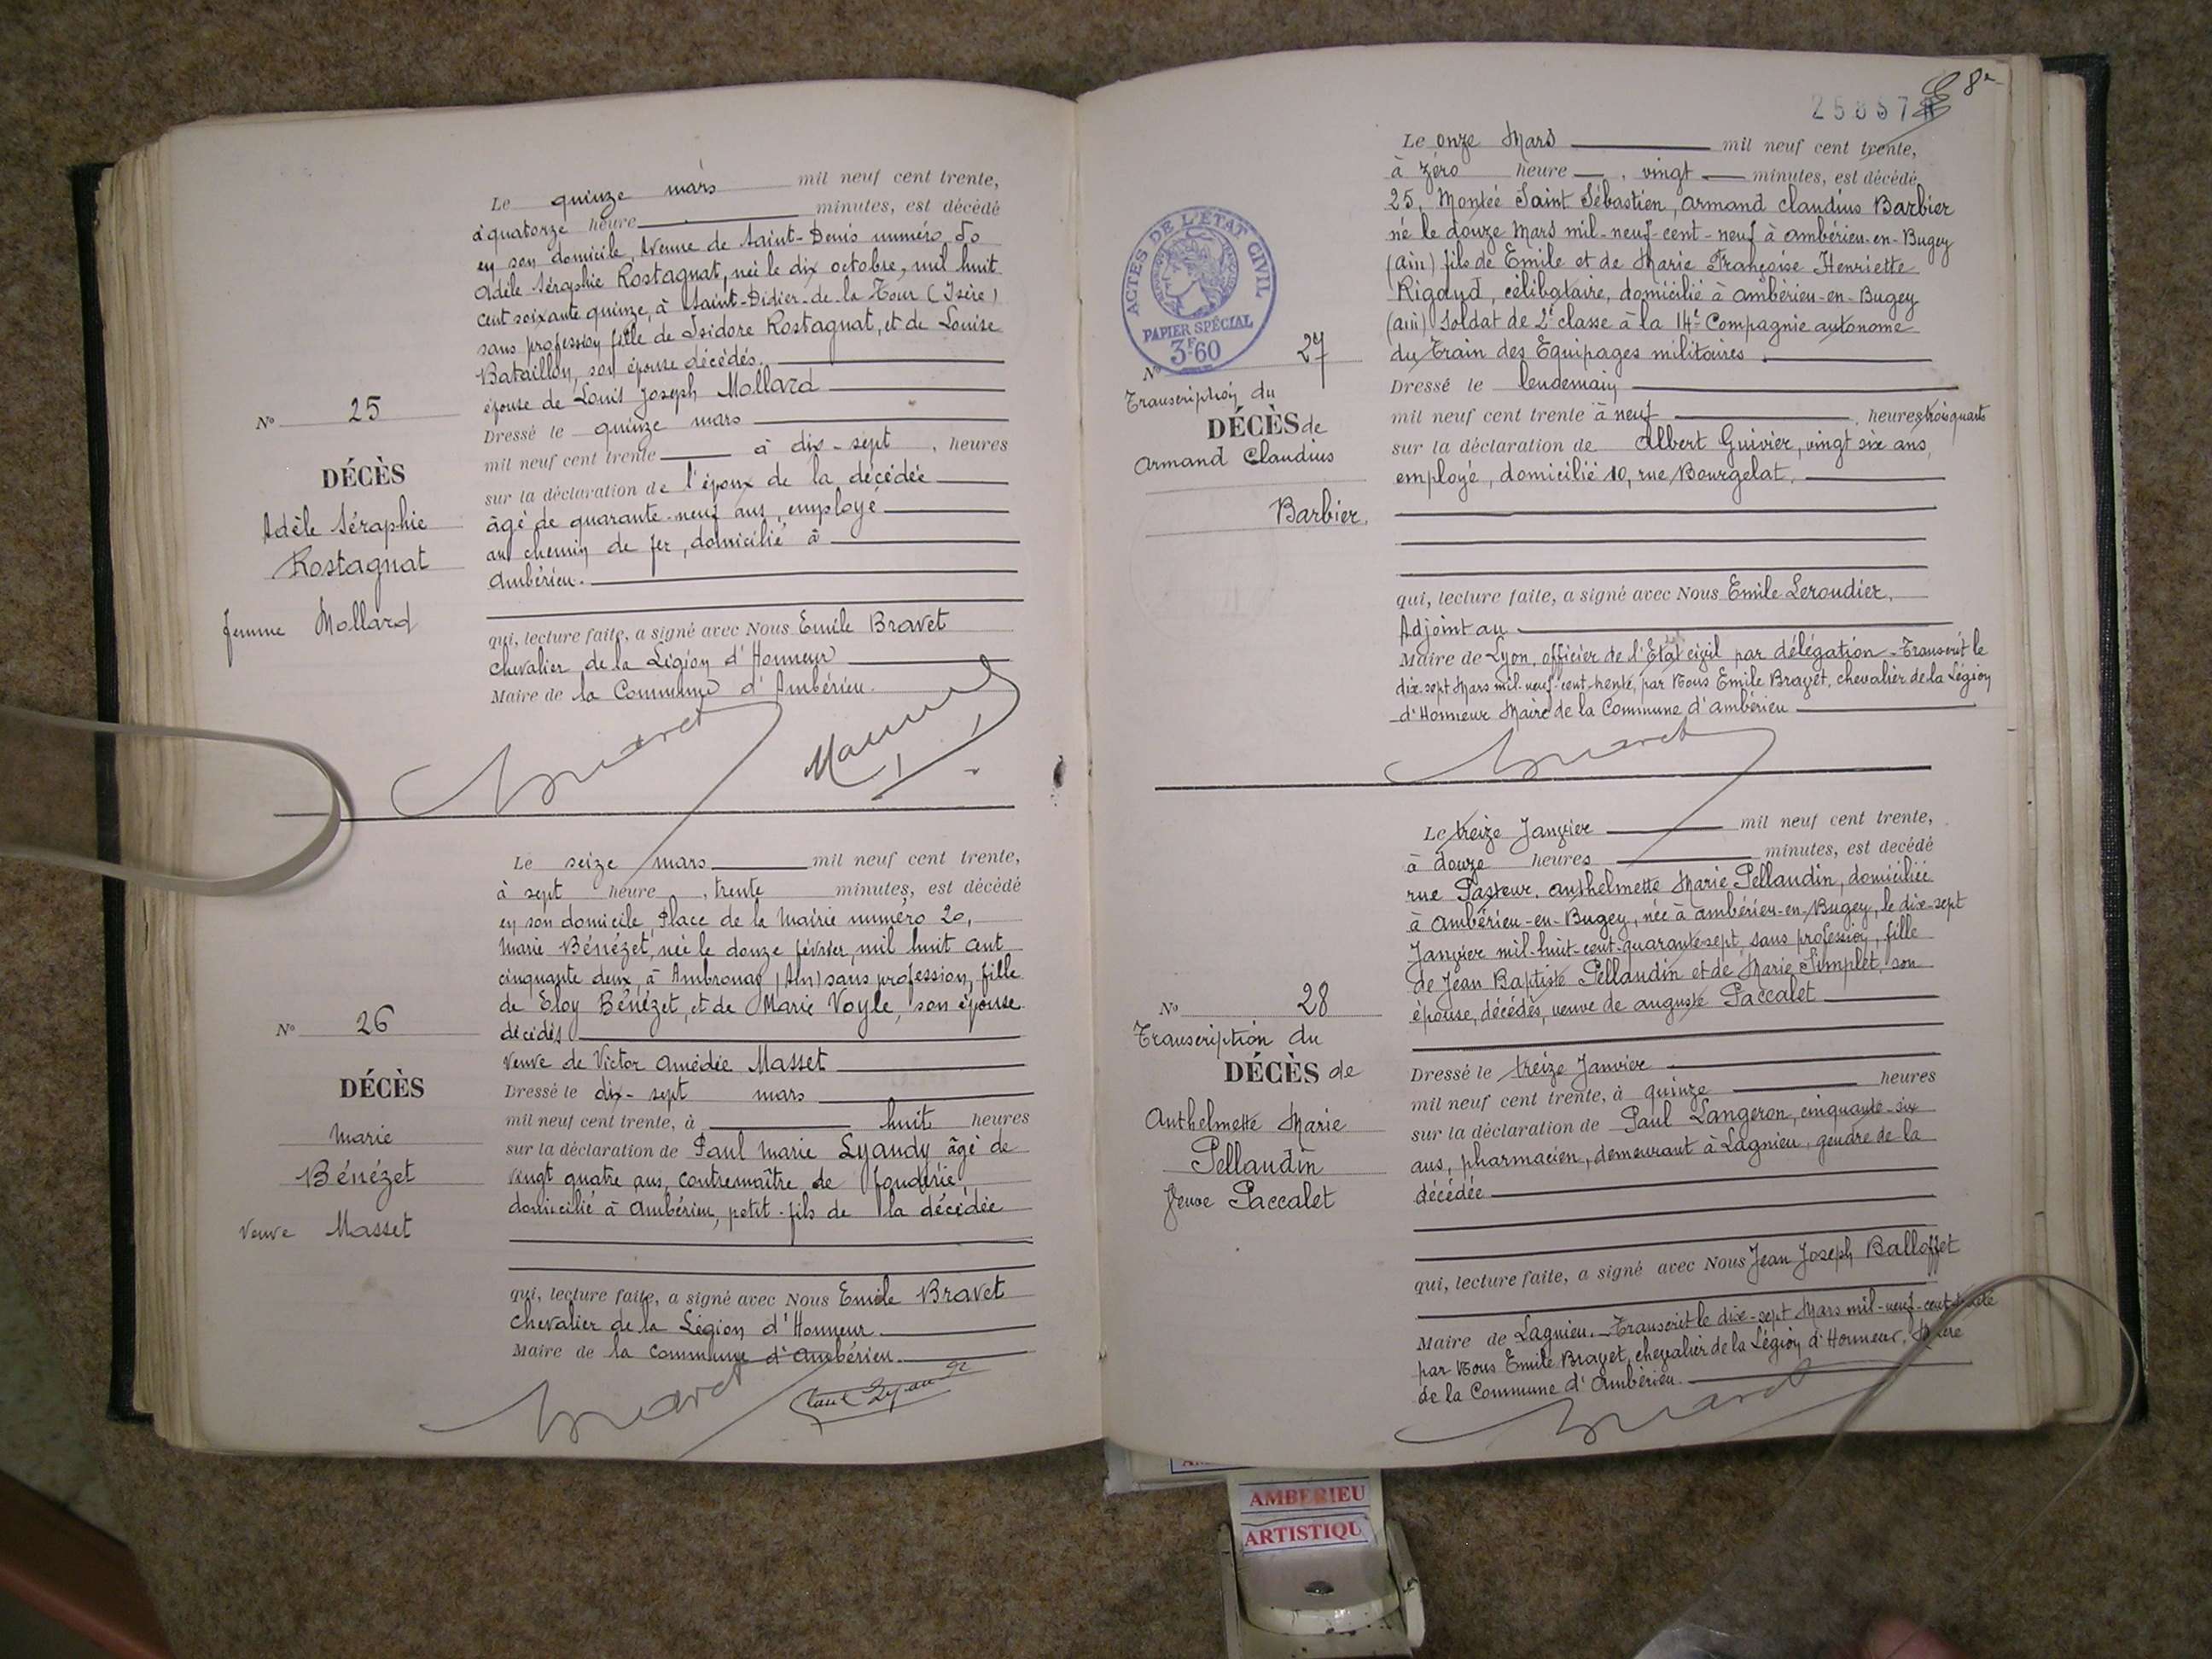 Le quinze mars mil neuf cent trente,
à quatorze heure minutes, est décédé
en son domicile, Avenue de Saint-Denis numéro 50
Adèle Séraphie Rostagnat, née le dix octobre, mil huit
cent soixante quinze, à Saint-Didier-de-la-Tour (Isère)
sans profession fille de Isidore Rostagnat, et de Louise
Bataillon, son épouse décédés.
épouse de Louis Joseph Mollard
Dressé le quinze mars
mil neuf cent trente à dix-sept, heures
sur la déclaration de l'époux de la décédée
âgé de quarante-neuf ans, employé
au chemin de fer, domicilié à
Ambérieu.
qui, lecture faite, a signé avec Nous Emile Bravet
chevalier de la Légion d'Honneur
Maire de la Commune d'Ambérieu.
Nº 25
DÉCÈS
Adèle Séraphie
Rostagnat
femme Mollard
Bravet
Le seize mars mil neuf cent trente,
à sept heure, trente minutes, est décédé
en son domicile, Place de la Mairie numéro 20,
Marie Bénézet, née le douze février, mil huit cent
cinquante deux, à Ambronay (Ain) sans profession, fille
de Eloy Bénézet, et de Marie Voyle, son épouse
décédés
veuve de Victor Amédée Masset
Dressé le dix-sept mars
mil neuf cent trente, à huit heures
sur la déclaration de Paul Marie Lyaudy âgé de
vingt quatre ans, contremaître de fonderie,
domicilié à Ambérieu, petit-fils de la décédée
qui, lecture faite, a signé avec Nous Emile Bravet
chevalier de la Légion d'Honneur
Maire de la Commune d'Ambérieu.
Nº 26
DÉCÈS
Marie
Bénézet
veuve Masset
Bravet
8e
Le onze Mars mil neuf cent trente,
à zéro heure, vingt minutes, est décédé
25, Montée Saint Sébastien, Armand Claudius Barbier
né le douze Mars mil-neuf-cent-neuf à Ambérieu-en-Bugey
(Ain) fils de Emile et de Marie Françoise Henriette
Rigaud, célibataire, domicilié à Ambérieu-en-Bugey
(Ain) Soldat de 2e classe à la 14e Compagnie autonome
du Train des Equipages militaires.
Dressé le lendemain
mil neuf cent trente à neuf, heures trois quarts
sur la déclaration de Albert Guivier, vingt six ans,
employé, domicilié 10, rue Bourgelat.
qui, lecture faite, a signé avec Nous Emile Leroudier,
Adjoint au
Maire de Lyon, officier de l'Etat civil par délégation. Transcrit le
dix-sept Mars mil-neuf-cent-trente, par Nous Emile Bravet, chevalier de la Légion
d'Honneur Maire de la Commune d'Ambérieu
ACTES DE L'ÉTAT CIVIL
PAPIER SPÉCIAL
3F60
Nº 27
Transcription du
DÉCÈS de
Armand Claudius
Barbier.
Bravet
Le treize Janvier mil neuf cent trente,
à douze heures minutes, est décédé
rue Pasteur, Anthelmette Marie Pellaudin, domiciliée
à Ambérieu-en-Bugey, née à Ambérieu-en-Bugey, le dix-sept
Janvier mil-huit-cent-quarante-sept, sans profession, fille
de Jean Baptiste Pellaudin et de Marie Simplet, son
épouse, décédés, veuve de Auguste Paccalet
Dressé le treize Janvier
mil neuf cent trente, à quinze heures
sur la déclaration de Paul Langeron, cinquante-six
ans, pharmacien, demeurant à Lagnieu, gendre de la
décédée
qui, lecture faite, a signé avec Nous Jean Joseph Balloffet
Maire de Lagnieu. Transcrit le dix-sept Mars mil-neuf-cent-trente
par Nous Emile Bravet, chevalier de la Légion d'Honneur, Maire
de la Commune d'Ambérieu.
Nº 28
Transcription du
DÉCÈS de
Anthelmette Marie
Pellaudin
Veuve Paccalet
Bravet
AMBERIEU
ARTISTIQU